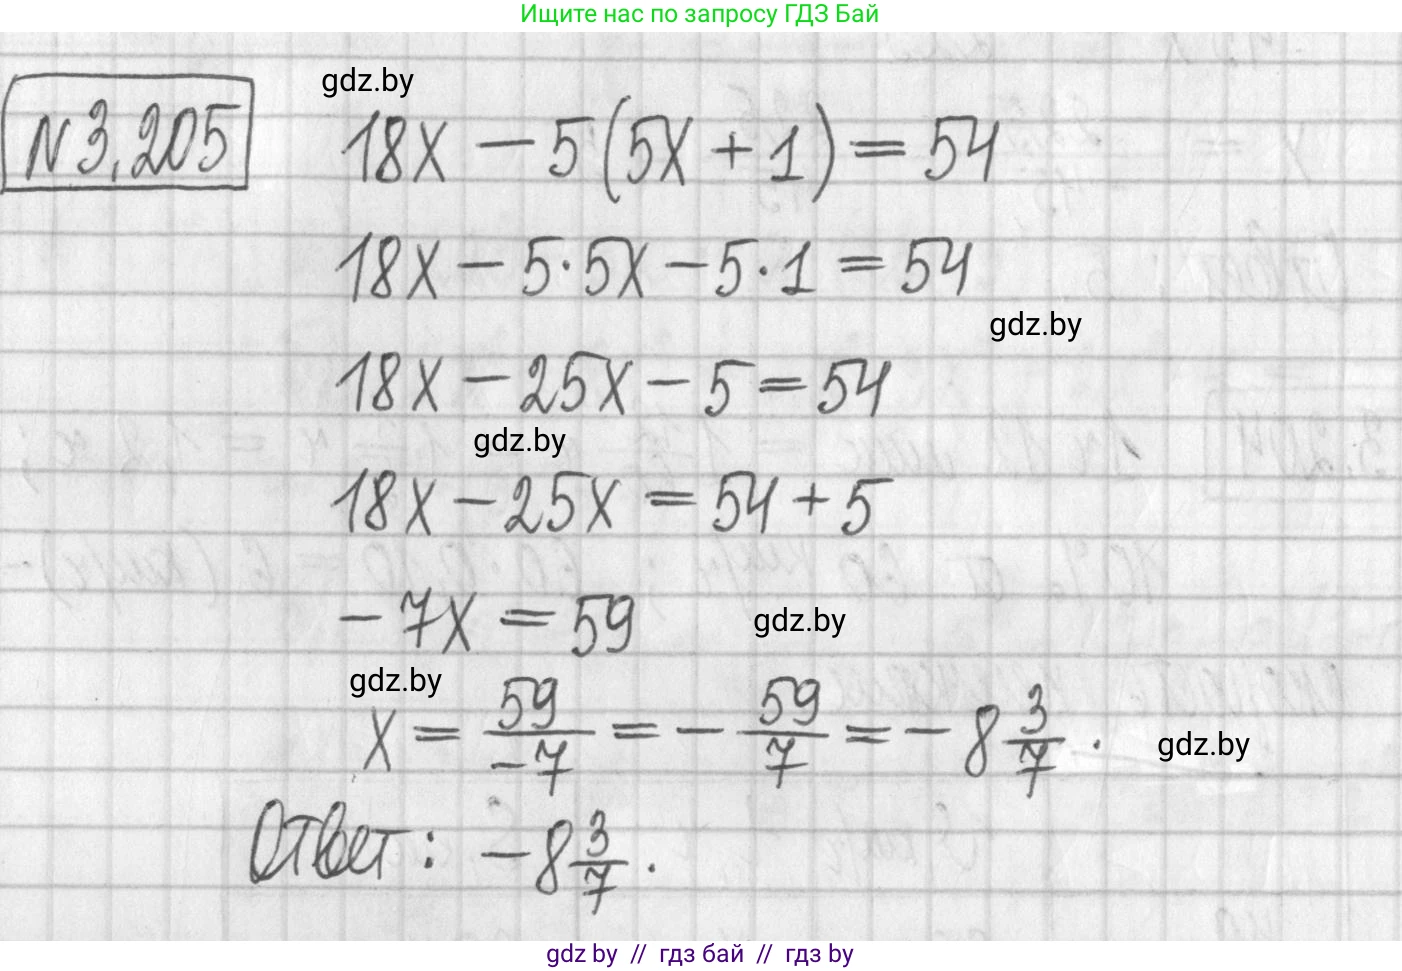 Ищите нас по запросу ГДЗ Бай
gdz.by
№ 3.205
18x − 5(5x + 1) = 54
18x − 5·5x − 5·1 = 54
gdz.by
18x − 25x − 5 = 54
gdz.by
18x − 25x = 54 + 5
−7x = 59
gdz.by
gdz.by
x = 59/−7 = − 59/7 = −8 3/7 .
gdz.by
Ответ: −8 3/7 .
gdz by // гдз бай // гдз by